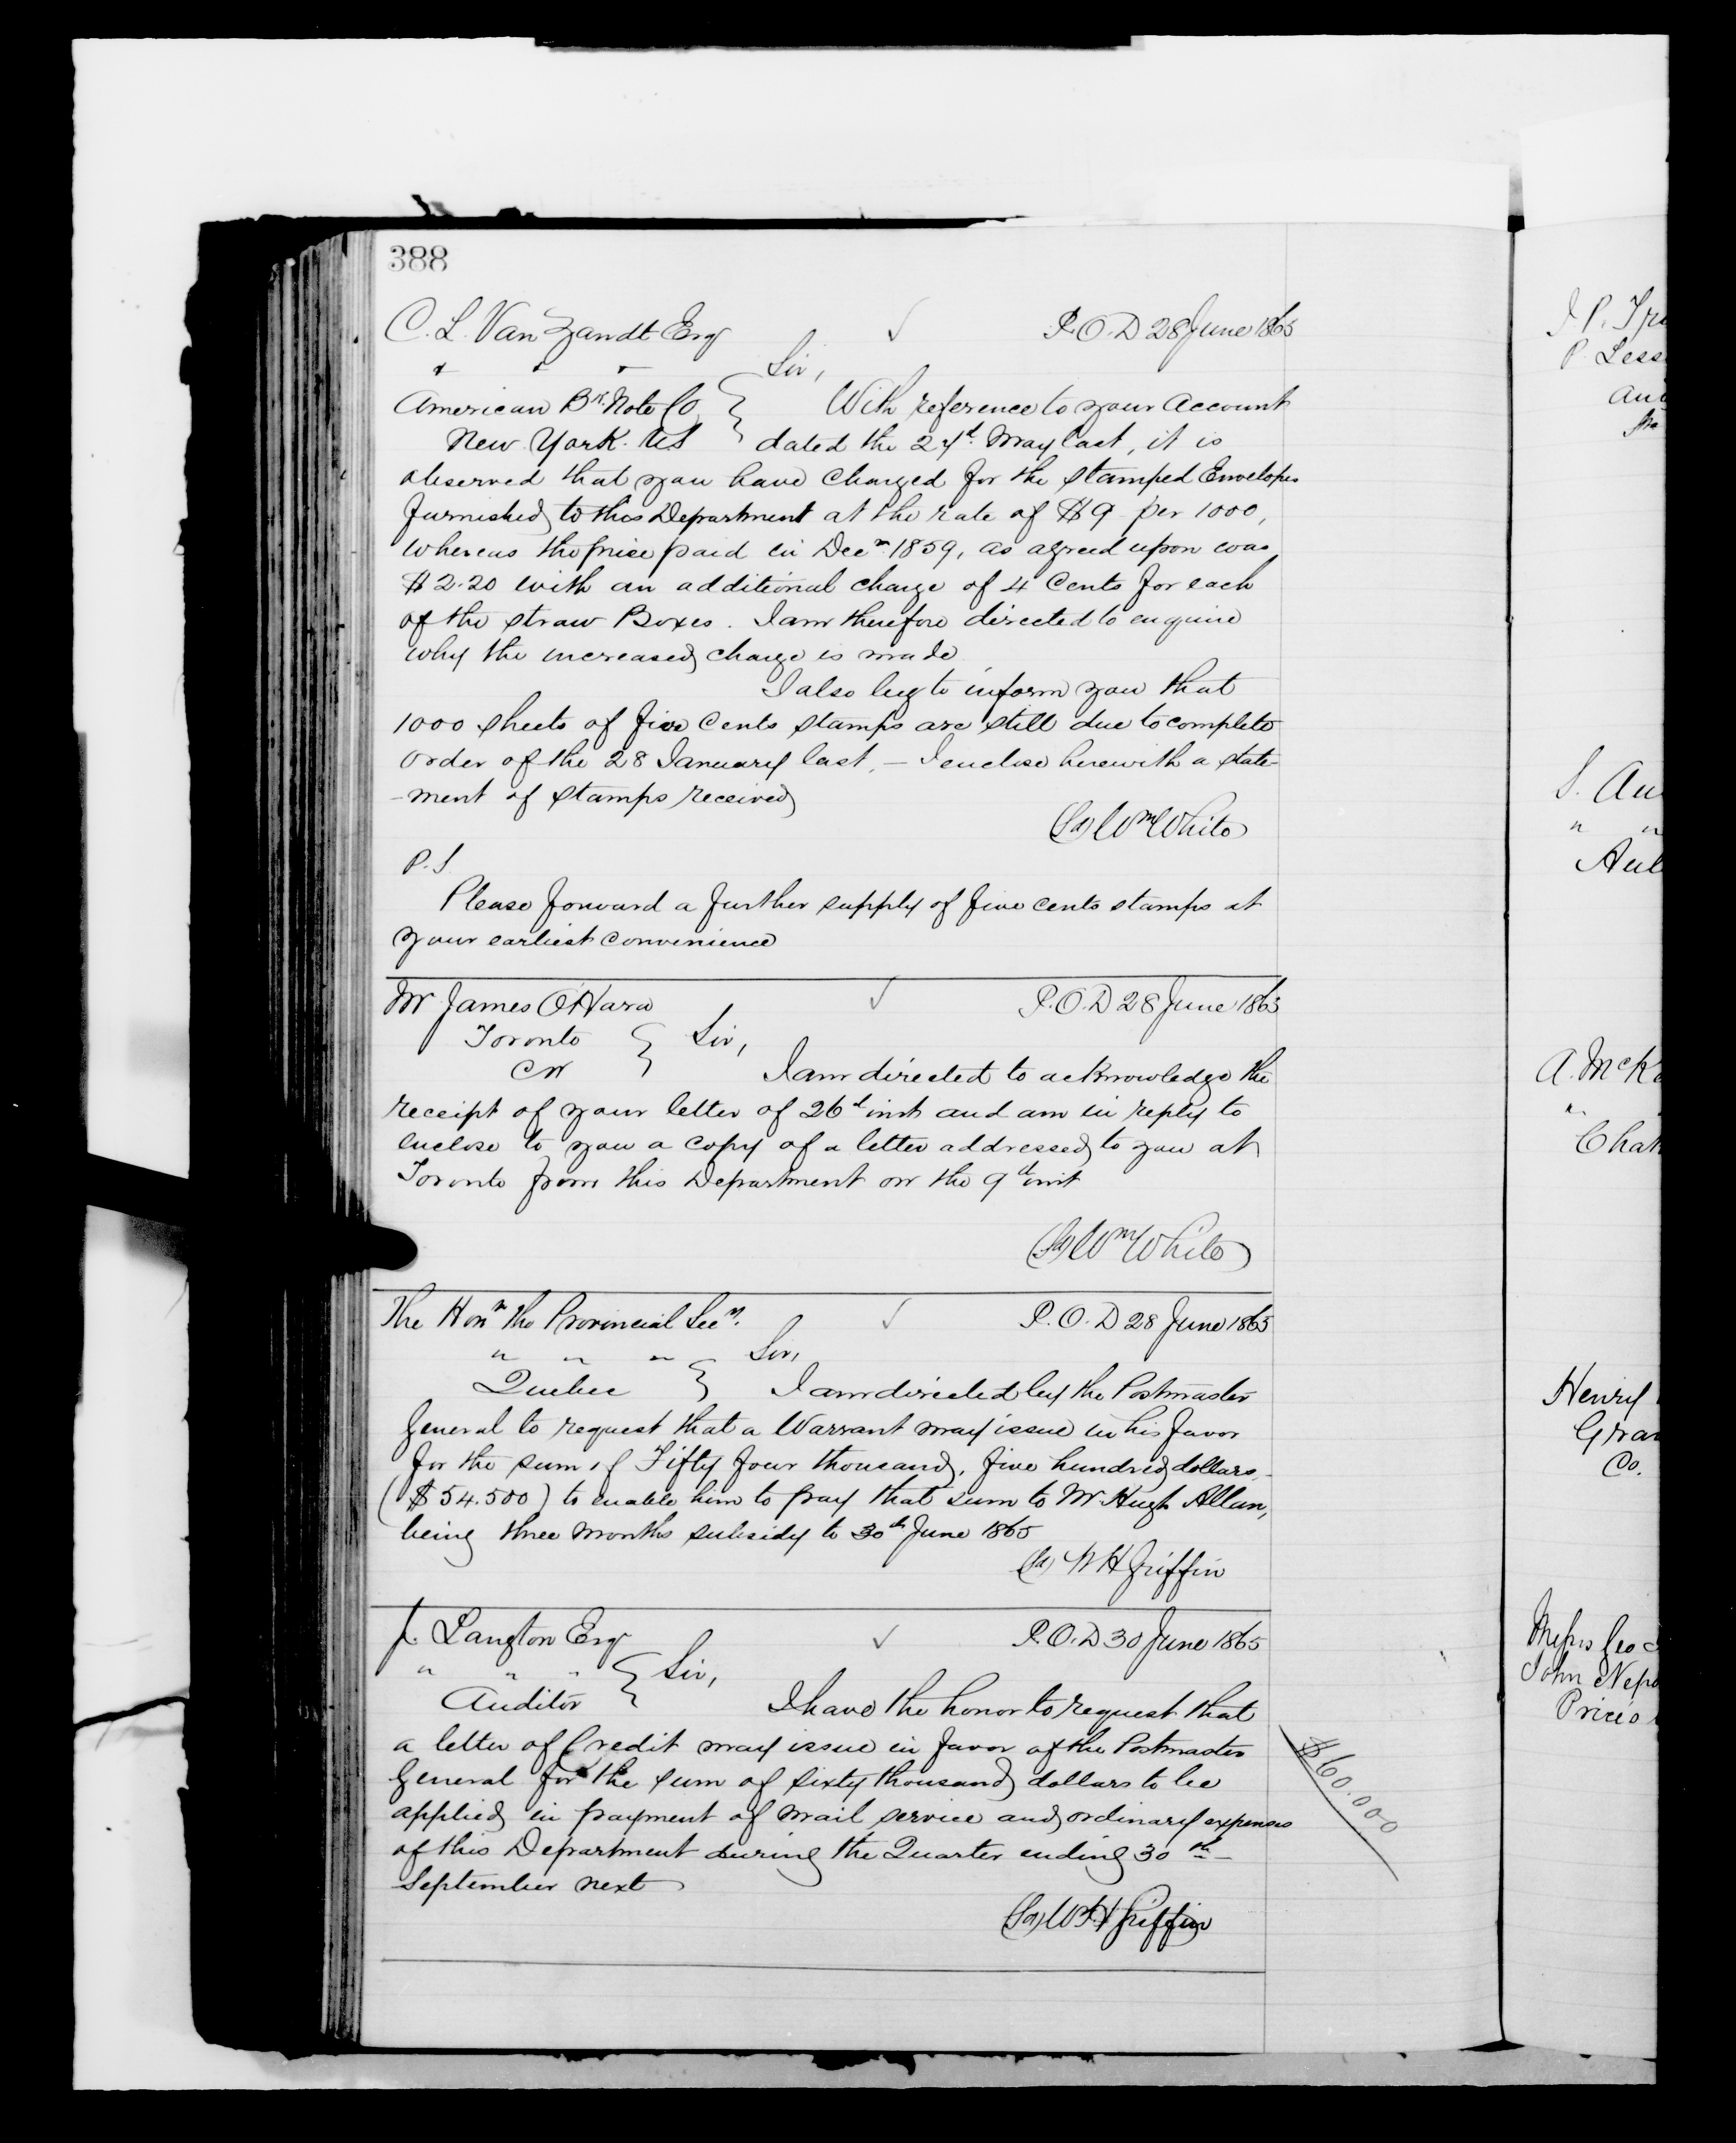 388
C. L. Van Zandt Esq ✓ P.O.D 28 June 1865
" " " Sir,
American Bk. Note Co } With reference to your Account
New York. US dated the 24th May last, it is
observed that you have charged for the stamped Envelopes
furnished to this Department at the rate of $9 per 1000,
whereas the price paid in Decr. 1859, as agreed upon was
$2.20 with an additional charge of 4 Cents for each
of the straw Boxes. I am therefore directed to enquire
why the increased charge is made
I also beg to inform you that
1000 sheets of five Cents stamps are still due to complete
order of the 28 January last, - I enclose herewith a state-
-ment of stamps received
(Sd) Wm White
P.S.
Please forward a further supply of five cents stamps at
your earliest convenience
Mr James O'Hara ✓ P.O.D 28 June 1865
Toronto } Sir,
CW I am directed to acknowledge the
receipt of your letter of 26th inst and am in reply to
enclose to you a copy of a letter addressed to you at
Toronto from this Department on the 9th inst
(Sd) Wm White
The Honr the Provincial Secy. ✓ P.O.D 28 June 1865
" " " Sir,
Quebec } I am directed by the Postmaster
General to request that a Warrant may issue in his favor
for the sum of Fifty four thousand, five hundred dollars,
($54.500) to enable him to pay that sum to Mr Hugh Allan,
being three months subsidy to 30th June 1865
(Sd) W H Griffin
J. Langton Esqr ✓ P.O.D 30 June 1865
" " " } Sir,
Auditor I have the honor to request that
a letter of Credit may issue in favor of the Postmaster
General for the sum of sixty thousand dollars to be
applied in payment of mail service and ordinary expenses
of this Department during the Quarter ending 30th
September next
$60.000
(Sd) W H Griffin
J. P.
P. Less
S. Au
" "
Aul
A. McK
"
Chat
Henry
Gra
Co.
Messrs Geo
John Nep
Price